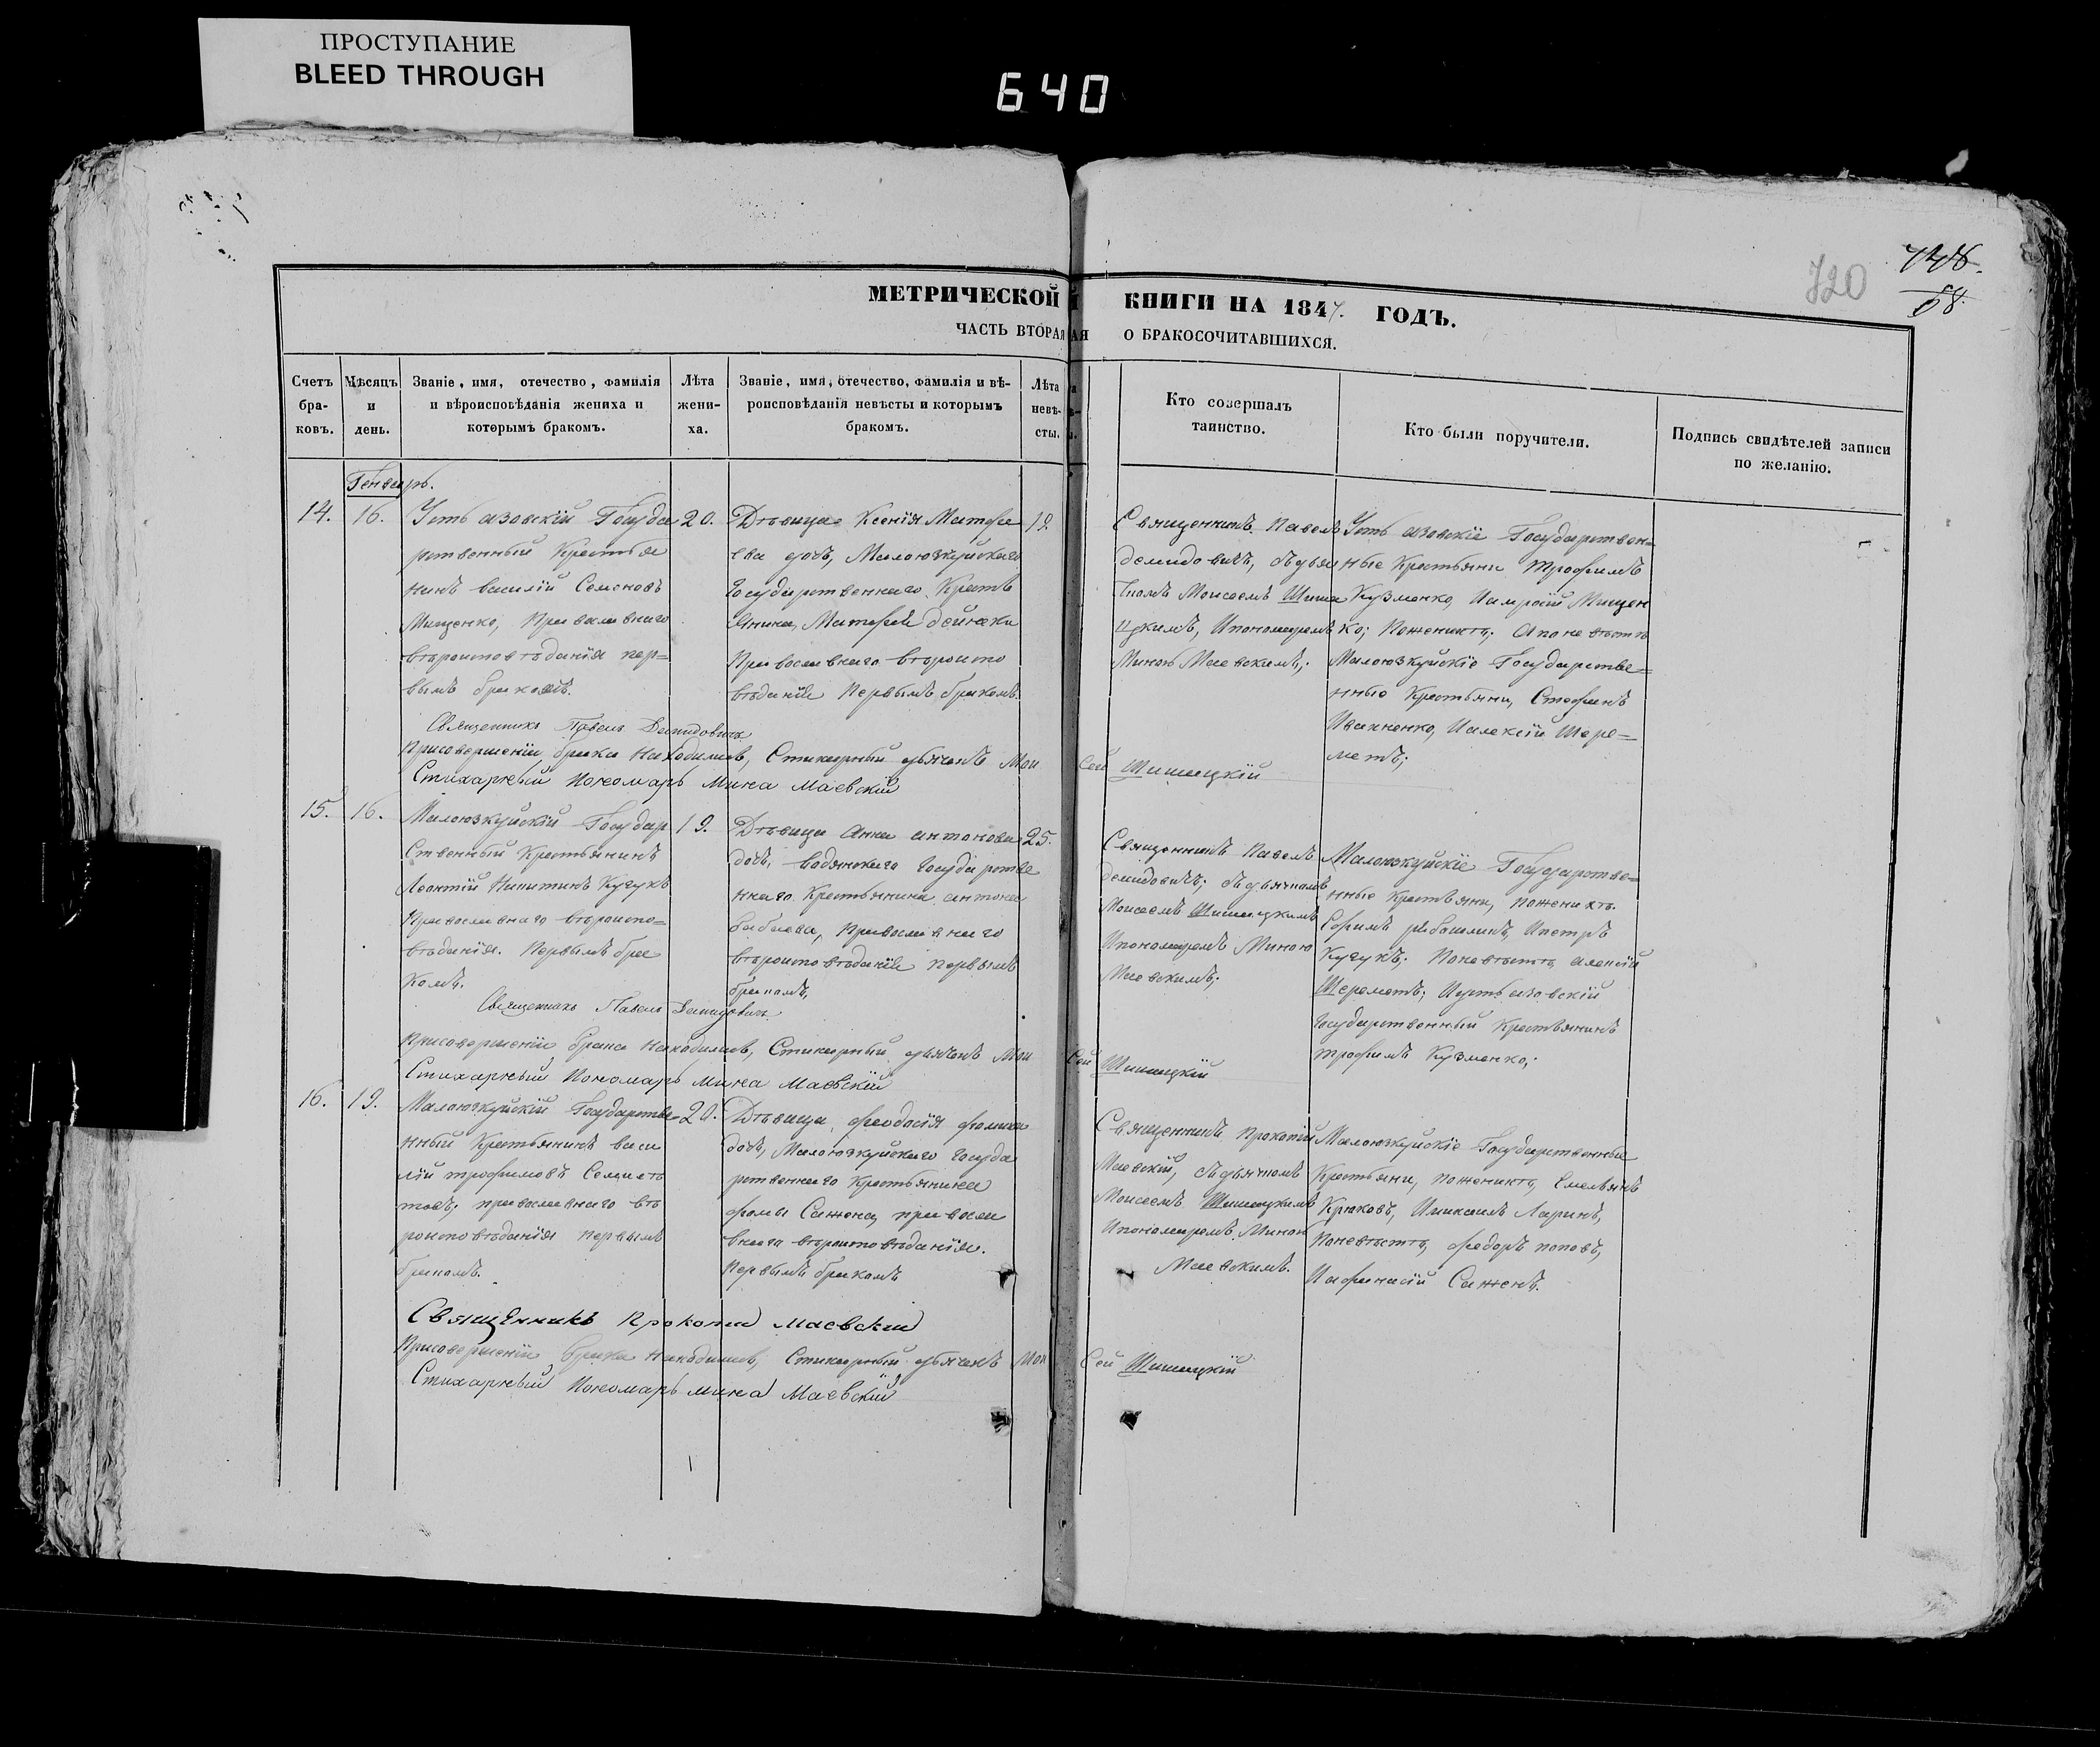 ПРОСТУПАНИЕ
BLEED THROUGH
640
720
68.
МЕТРИЧЕСКОЙ КНИГИ НА 1847. ГОДЪ.
ЧАСТЬ ВТОРАЯ О БРАКОСОЧИТАВШИХСЯ.
Счетъ бра-ковъ.
Мѣсяцъ и день.
Званіе, имя, отечество, фамилія и вѣроисповѣданія жениха и которымъ бракомъ.
Лѣта жени-ха.
Званіе, имя, отечество, фамилія и вѣ-роисповѣданія невѣсты и которымъ бракомъ.
Лѣта невѣ-сты.
Кто совершалъ таинство.
Кто были поручители.
Подпись свидѣтелей записи по желанію.
Генварь.
14.
16.
Усть азовскій Госуда
рственный Крестья
нинъ василій Семеновъ
Мищенко, Православнаго
вѣроисповѣданія пер=
вымъ бракомъ.
20.
Дѣвица Ксенія Матфѣ
ева дочь, Малоюзкуйскаго
Государственнаго Кресть
янина, Матфея дейнеки
Православнаго вѣроиспо
вѣданія Первымъ бракомъ.
19
Священникъ Павелъ
демидовичъ, съдья
чкомъ Моисеемъ Шиша
цкимъ, Ипономаремъ
Миною Маевскимъ;
Усть азовскіе Государствен=
ные Крестьяни Трофимъ
Кузменко, Мищен
ко; Поженихѣ; Апоневѣстѣ
Малоюзкуйскіе Государстве=
нные Крестьяни, Стефанъ
Ивахненко, Иалексій Шере=
метъ;
Священникъ Павелъ Демидовичъ
Присовершеніи брака Находились, Стихарный дьячекъ Мои сей Шишацкій
Стихарный Пономарь Мина Маевскій
15.
16.
Малоюзкуйскій Государ
Ственный Крестьянинъ
Леонтій Никитинъ Кучукъ
Православнаго вѣроиспо=
вѣданія. Первымъ бра
комъ.
19.
Дѣвица Анна антонова
дочь, водянскаго Государстве
ннаго Крестьянина антона
бабаева, Православнаго
вѣроисповѣданія первымъ
бракомъ,
25.
Священникъ Павелъ
демидовичъ; съдьячкомъ
Моисеемъ Шишацкимъ
Ипономаремъ Миною
Маевскимъ;
Малоюзкуйскіе Государстве=
нные Крестьяни, поженихѣ
Ипетръ
Кучукъ; Поневѣстѣ алексій
Шереметъ; Иусть азовскій
Государственный Крестьянинъ
трофимъ Кузменко;
Священникъ Павелъ Демидовичъ
Присовершеніи брака Находились, Стихарный дьячекъ Мои сей Шишацкій
Стихарный Пономарь Мина Маевскій
16.
19.
Малоюзкуйскій Государстве=
нный Крестьянинъ васи
лій трофимовъ
православнаго вѣ
роисповѣданія первымъ
бракомъ.
20.
Дѣвица, феодосія фомина
дочь, Малоюзкуйскаго Госуда
рственнаго Крестьянина
фомы Сажена, правосла
внаго вѣроисповѣданія.
Первымъ бракомъ
Священникъ Прокопій
Маевскій, съдьячкомъ
Моисеемъ Шишацкимъ
Ипономаремъ Миною
Маевскимъ.
Малоюзкуйскіе Государственные
Крестьяни, поженихѣ, Емельянъ
Крюковъ, Имихаилъ Ларинъ,
Поневѣстѣ, федоръ поповъ,
Иафанасій Саженъ.
Священникъ Прокопій Маевскій
Присовершеніи брака Находились, Стихарный дьячекъ Мои сей Шишацкій
Стихарный Пономарь мина Маевскій